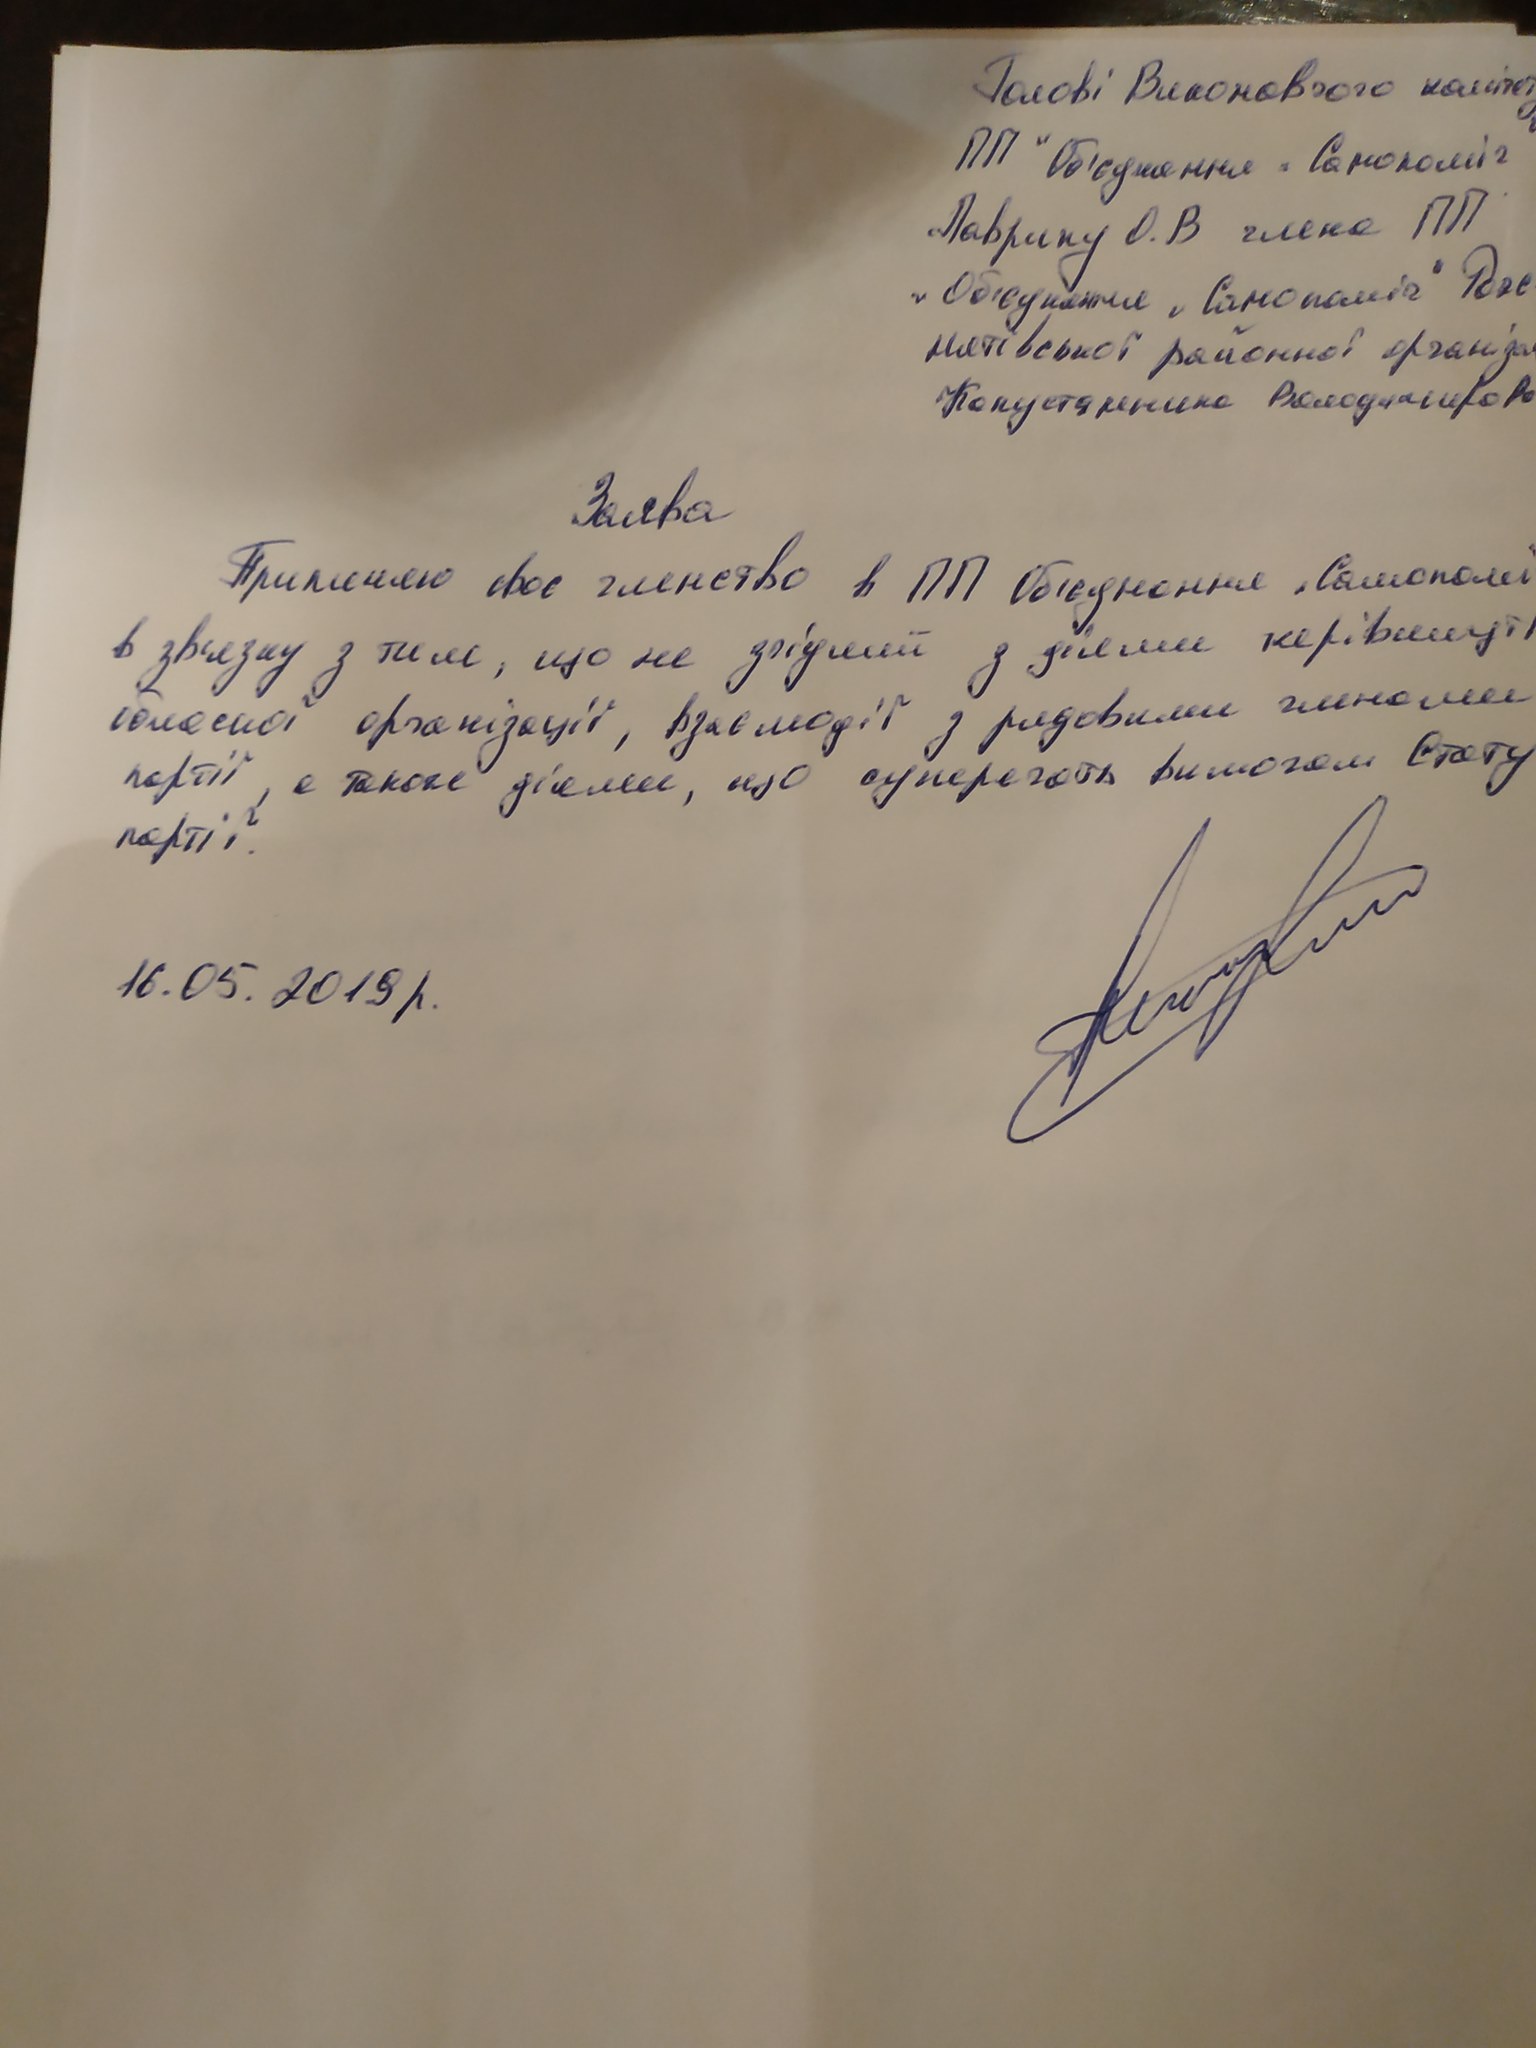 Голові Виконавчого комітету
ПП "Об'єднання "Самопоміч
Лаврику О.В члена ПП
"Об'єднання "Самопоміч" Рожн
нятівської районної організа
Капустянчика Володимирови
Заява
Припиняю своє членство в ПП Об'єднання "Самопомі
в зв'язку з тим, що не згідний з діями керівницт
обласної організації, взаємодії з рядовими членами
партії, а також діями, що суперечать вимогам Стату
партії.
16.05.2019р.